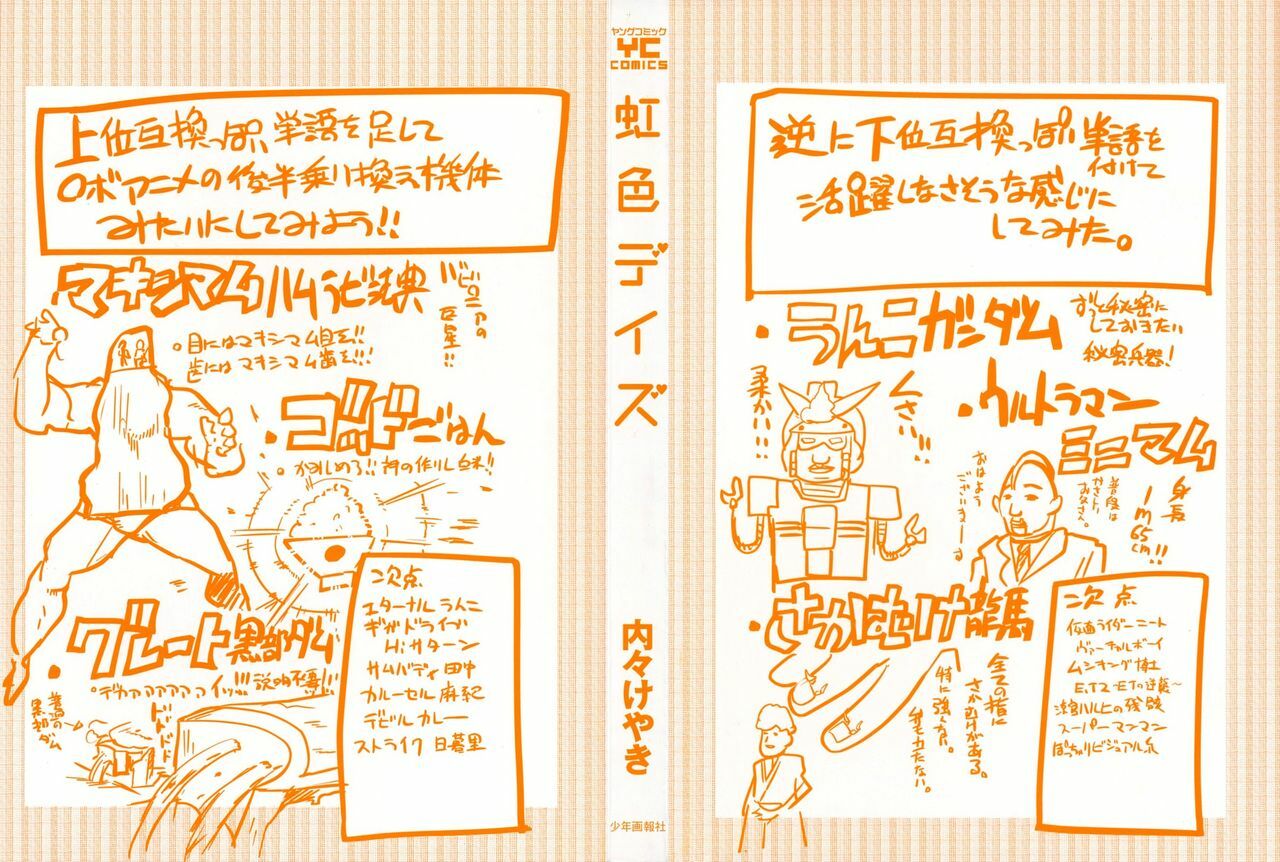 上位互換っぽい単語を足して
ロボアニメの後半乗り換え機体
みたいにしてみよう!!
マキシマムハムラビ法典
バビロニアの
巨星!!
目にはマキシマム目を!!
歯にはマキシマム歯を!!!
ゴッドごはん
かみしめろ!!神の作りし白米!!
グレート黒部ダム
デカァァァァァァイッ!!!説明不要!!!
普通の
黒部ダム
ドドドド
二次点
エターナルうんこ
ギガドライブ
Hiサターン
サムバディ田中
カルーセル麻紀
デビルカレー
ストライク日暮里
ヤングコミック
YC
COMICS
虹色デイズ
内々けやき
少年画報社
逆に下位互換っぽい単語を
付けて
活躍しなさそうな感じに
してみた。
うんこガンダム
ずっと秘密に
しておきたい
秘密兵器!
くさい!!
柔かい!!
ウルトラマン
ミニマム
身長
1m65cm!!
普段は
やさしい
お父さん。
おはよう
ございまーーす
さかむけ龍馬
全ての指に
さかむけがある。
特に強くない。
弁もたたない。
二次点
仮面ライダーニート
ヴァーチャルボーイ
ムシキング博士
E.T.2 -E.Tの逆襲～
涼宮ハルヒの残骸
スーパーマンマン
ぽっちゃりビジュアル系